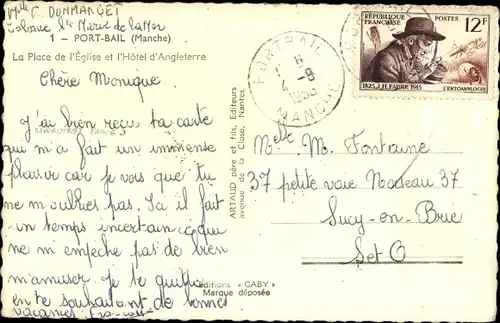 Melle C. DOMMANGET
Tabac Ste Marie de la Mer
1 - PORT-BAIL (Manche)
La Place de l'Église et l'Hôtel d'Angleterre
Chère Monique
J'ai bien reçu ta carte
qui m'a fait un immense
plaisir car je vois que tu
ne m'oublies pas. Ici il fait
un temps incertain ce qui
ne m'empêche pas de bien
m'amuser. Je te quitte
en te souhaitant de bonnes
vacances.
ARTAUD père et fils, Editeurs
avenue de la Close, Nantes
Editions « GABY »
Marque déposée
PORT BAIL
6 -8
1956
MANCHE
RÉPUBLIQUE FRANÇAISE
POSTES
12F
1823 J.H. FABRE 1915
L'ENTOMOLOGIE
Melle M. Fontaine
37 petite voie Nadeau 37
Sucy-en-Brie
Set O